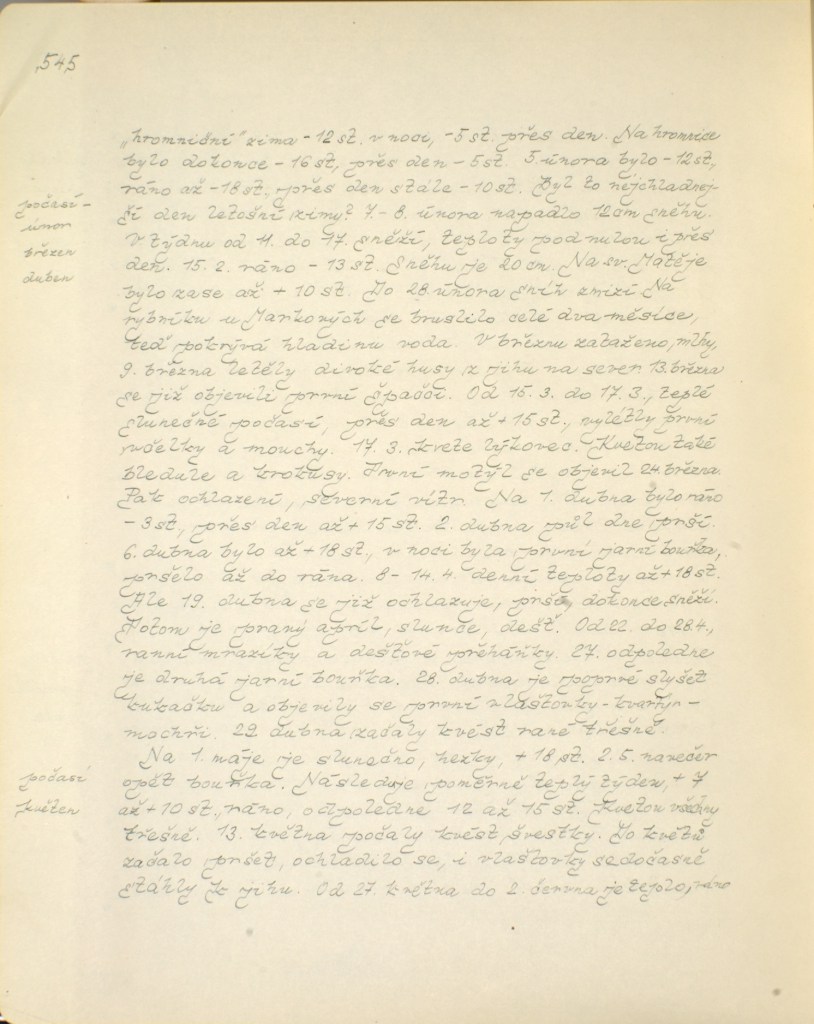 545
„hromniční" zima - 12 st. v noci, -5 st. přes den. Na hromnice
bylo dokonce - 16 st, přes den - 5 st. 5. února bylo - 12 st,
ráno až - 18 st. přes den stále - 10 st. Byl to nejchladnej-
počasí -
ší den letošní zimy? 7.- 8. února napadlo 12 cm sněhu.
únor
V týdnu od 11. do 17. sněží, teploty pod nulou i přes
březen
den. 15. 2. ráno - 13 st. Sněhu je 20 cm. Na sv. Matěje
duben
bylo zase až + 10 st. Do 28. února sníh zmizí. Na
rybníku u Markových se bruslilo celé dva měsíce,
teď pokrývá hladinu voda. V březnu zataženo, mlhy,
9. března letěly divoké husy z jihu na sever. 13. března
se již objevili první špačci. Od 15. 3. do 17. 3., teplé
slunečné počasí, přes den až + 15 st., vylétly první
včelky a mouchy. 17. 3. kvete lýkovec. Kvetou také
bledule a krokusy. První motýl se objevil 24. března.
Pak ochlazení, severní vítr. Na 1. dubna bylo ráno
- 3 st., přes den až + 15 st. 2. dubna půl dne prší.
6. dubna bylo až + 18 st., v noci byla první jarní bouřka,
pršelo až do rána. 8 - 14. 4. denní teploty až + 18 st.
Ale 19. dubna se již ochlazuje, prší, dokonce sněží.
Potom je pravý apríl, slunce, déšť. Od 22. do 28.4.,
ranní mrazíky a dešťové přeháňky. 27. odpoledne
je druhá jarní bouřka. 28. dubna je poprvé slyšet
kukačku a objevily se první vlaštovky - kvartýr-
mochři. 29. dubna začaly kvést rané třešně.
Na 1. máje je slunečno, hezky, + 18 st. 2. 5. navečer
počasí
opět bouřka. Následuje poměrně teplý týden, + 7
květen
až + 10 st., ráno, odpoledne 12 až 15 st. Kvetou všechny
třešně. 13. května počaly kvést švestky. Do květů
začalo pršet, ochladilo se, i vlaštovky se dočasně
stáhly k jihu. Od 27. května do 2. června je teplo, ráno